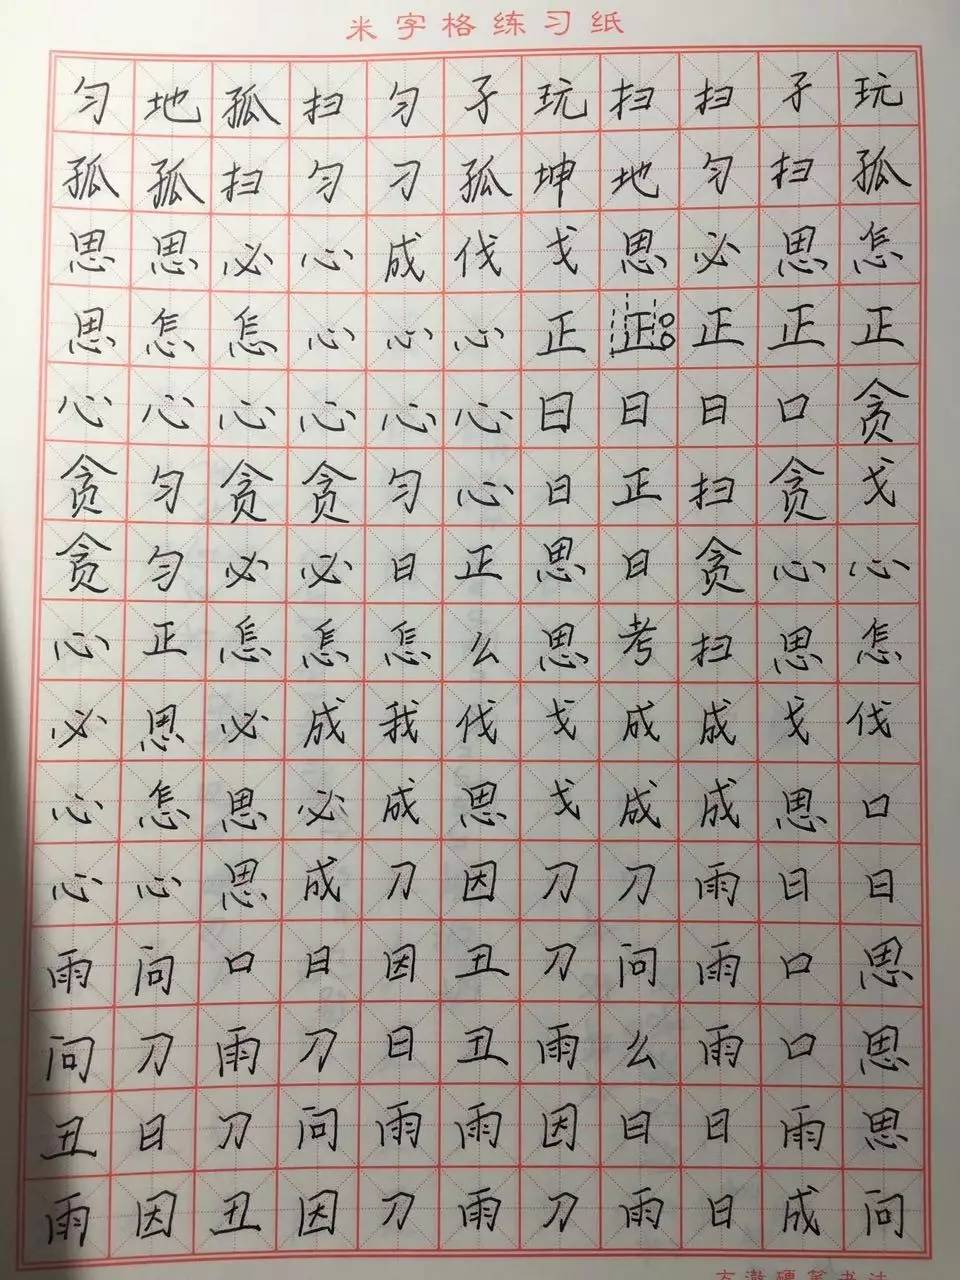 米字格练习纸
匀地孤扫匀孑玩扫扫孑玩
孤孤扫匀刁孤坤地匀扫孤
思思必心成伐戈思必思怎
思怎怎心心心正正正正正
心心心心心心日日日口贪
贪匀贪贪匀心日正扫贪戈
贪匀必必日正思日贪心心
心正怎怎怎么思考扫思怎
必思必成我伐戈成成戈伐
心怎思必成思戈成成思口
心心思成刀因刀刀雨日日
雨问口日因丑刀问雨口思
问刀雨刀日丑雨么雨口思
丑日刀问雨雨因日日雨思
雨因丑因刀雨刀雨日成问